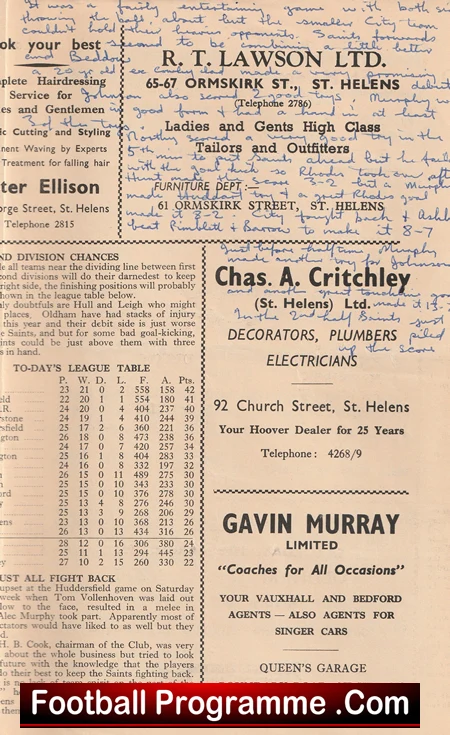 It was a fairly entertaining game with both sides
throwing the ball about but the smaller City team
couldn't hold their heavier opponents. Saints forwards
seemed to be combining a little better
and Beddow
a 20 yr old ex
made a very promising
debut
also scored good trys, Murphy w
in good form & had a hand in at least
3 of the trys
Northey scored a very good try in the
5th min to put Saints ahead but he failed
with the goal kick so Rhodes took over after
Hunt made the score 3-2 but a Murphy
made Huddart try & a great Rhodes goal
made it 8-2. City fought back & Ashby
beat Pimblett & Barrow to make it 8-7
Just before half time Murphy
made another try for Johnson
and another great touchline goal
made it 13-7
In the 2nd half Saints just
piled
up the score
ok your best
plete Hairdressing
Service for
ies and Gentlemen
ic Cutting and Styling
nent Waving by Experts
Treatment for falling hair
ter Ellison
orge Street, St. Helens
Telephone 2815
R. T. LAWSON LTD.
65-67 ORMSKIRK ST., ST. HELENS
(Telephone 2786)
Ladies and Gents High Class
Tailors and Outfitters
FURNITURE DEPT :—
61 ORMSKIRK STREET, ST. HELENS
ND DIVISION CHANCES
le all teams near the dividing line between first
cond divisions will do their darnedest to keep
right side, the finishing positions will probably
hown in the league table below.
ly doubtfuls are Hull and Leigh who might
places. Oldham have had stacks of injury
this year and their debit side is just worse
e Saints, and but for some bad goal-kicking,
ints could be just above them with three
s in hand.
TO-DAY'S LEAGUE TABLE
P. W. D. L. F. A. Pts.
23 21 0 2 558 158 42
eld 22 20 1 1 554 180 41
.R. 24 20 0 4 404 237 40
rstone 24 19 1 4 410 244 39
rsfield 25 17 2 6 360 221 36
ngton 26 18 0 8 473 238 36
24 17 0 7 420 257 34
gton 25 16 1 8 404 283 33
24 16 0 8 332 197 32
n 26 15 0 11 489 275 30
25 15 0 10 343 233 30
ord 25 15 0 10 376 278 30
ey 25 13 4 8 276 246 30
25 13 3 9 268 206 29
ens 23 13 0 10 368 213 26
26 13 0 13 434 316 26
28 12 0 16 306 380 24
25 11 1 13 294 445 23
ey 27 10 2 15 260 330 22
UST ALL FIGHT BACK
upset at the Huddersfield game on Saturday
week when Tom Vollenhoven was laid out
low to the face, resulted in a melee in
Alec Murphy took part. Apparently most of
ctators would have liked to as well but they
d.
H. B. Cook, chairman of the Club, was very
about the whole business but tried to look
future with the knowledge that the players
do their best to keep the Saints fighting back.
Chas. A. Critchley
(St. Helens) Ltd.
DECORATORS, PLUMBERS
ELECTRICIANS
92 Church Street, St. Helens
Your Hoover Dealer for 25 Years
Telephone: 4268/9
GAVIN MURRAY
LIMITED
"Coaches for All Occasions"
YOUR VAUXHALL AND BEDFORD
AGENTS — ALSO AGENTS FOR
SINGER CARS
QUEEN'S GARAGE
Football Programme .Com